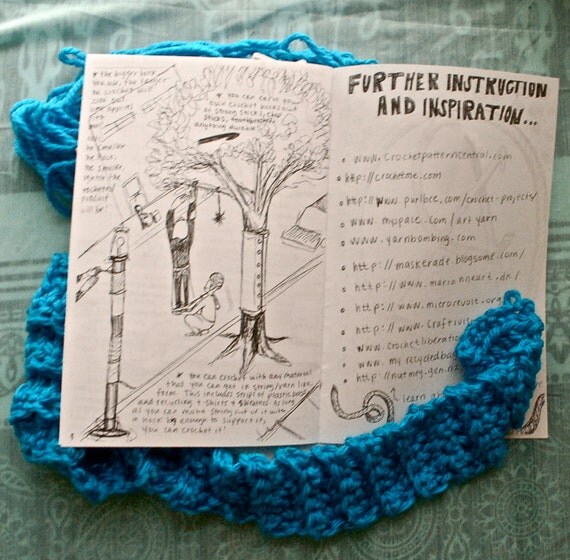 * the bigger hook
you use, the larger
You can carve your
own crochet hooks out
of strong sticks, chop
sticks, toothbrushes,
anything durable!
product
will be!
* You can crochet with any material
that you can get in string/yarn like
form. This includes strips of plastic bags
and recycling t-shirts & sweaters. As long
as you can make string out of it with
a hook big enough to support it,
you can crochet it!
FURTHER INSTRUCTION
AND INSPIRATION...
www.crochetpatterncentral.com
http://crochetme.com
http://www.purlbee.com/crochet-projects/
www.myspace.com/artyarn
www.yarnbombing.com
http://maskerade.blogsome.com/
http://www.marianneart.dk/
http://www.microrevolt.org
http://www.craftivis
www.crochetliberation
www.myrecycledbag
http://nutmeg.gen.nz
learn